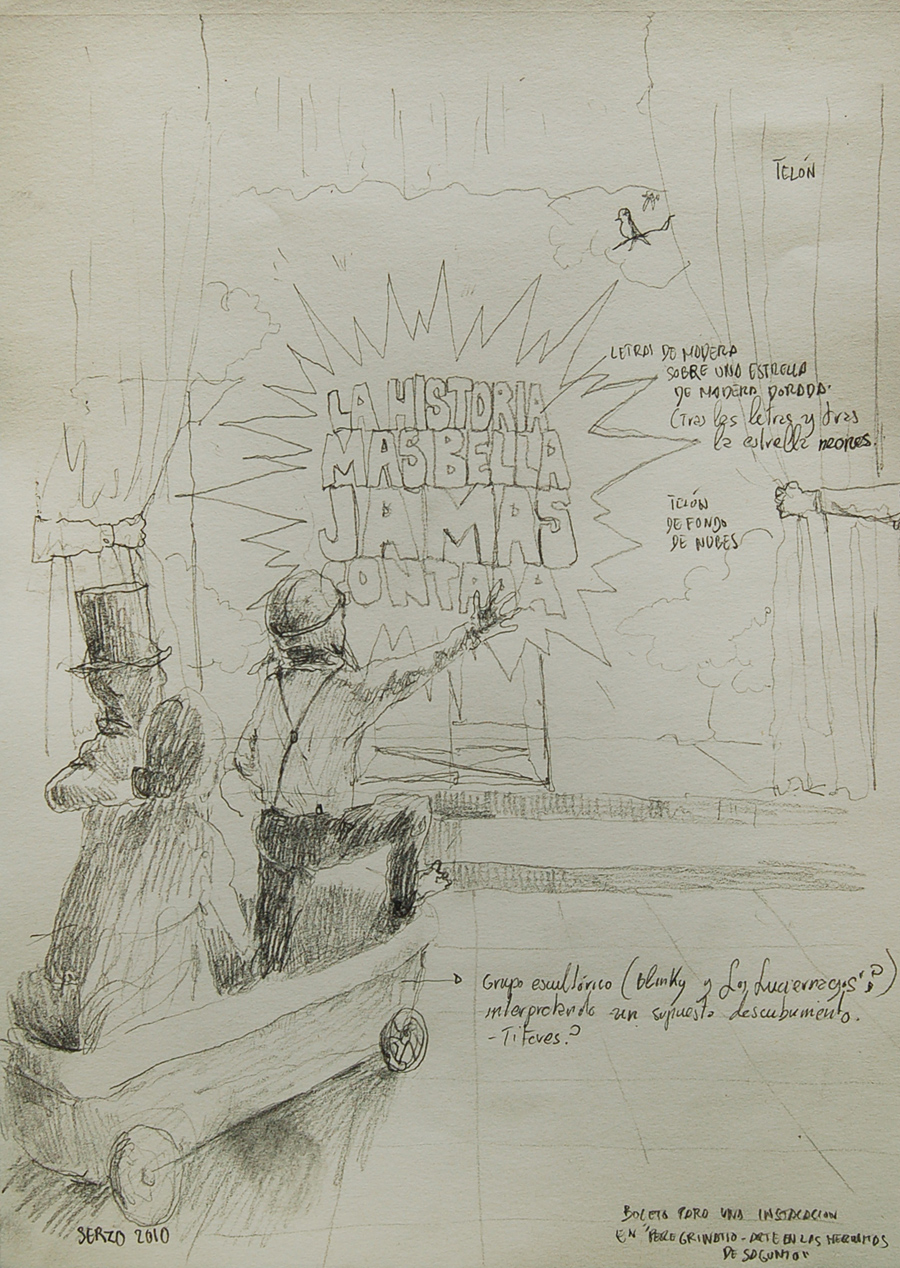 TELÓN
LETRAS DE MADERA
SOBRE UNA ESTRELLA
DE MADERA DORADA.
(Tras las letras y tras
la estrella neones.
LA HISTORIA
MAS BELLA
JAMAS
CONTADA
TELÓN
DE FONDO
DE NUBES
Grupo escultórico (Blinky y Los Luciernagos"?)
interpretando un supuesto descubrimiento.
- Titeres?
SERZO 2010
BOCETO PARA UNA INSTALACION
EN "PEREGRINATIO - ARTE EN LAS HERMITAS
DE SAGUNTO"